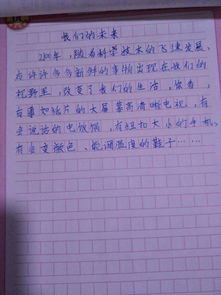 我们的未来
2001年，随着科学技术的飞速发展，
有许许多多新鲜的事物出现在我们的
视野里，改变了我们的生活，你看，
有薄如纸片的大屏幕高清晰电视，有
会说话的电饭锅，有纽扣大小的手机，
有会变颜色、能调温度的鞋子……